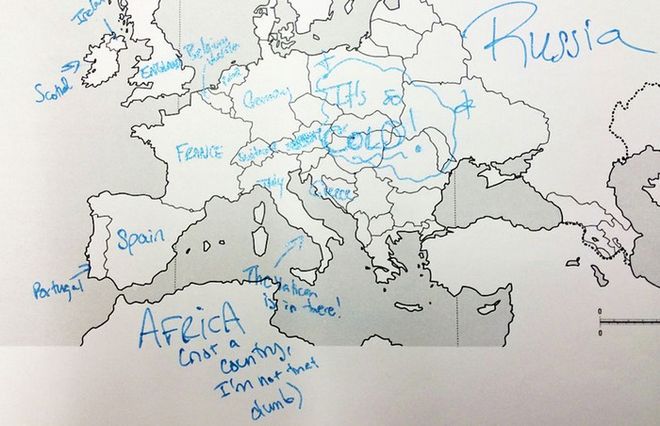 Ireland
Russia
Belgium
ENGLAND
Scotland
Germany
It's so
COLD!
FRANCE
Italy
Greece
Spain
Portugal
The Vatican
is in there!
AFRICA
(not a
country,
I'm not that
dumb)
0
0